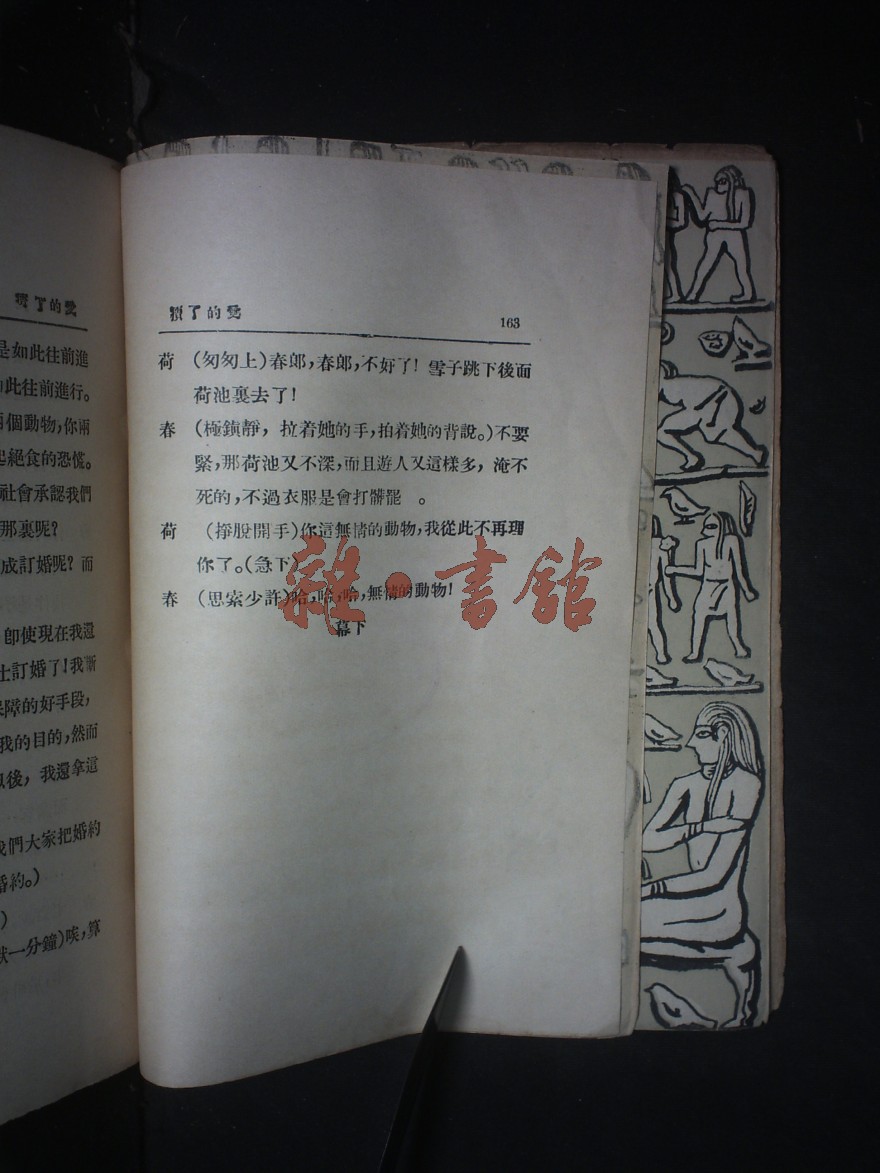 愛的了㱮
是如此往前進
此往前進行。
兩個動物,你兩
起絕食的恐慌。
社會承認我們
那裏呢?
成訂婚呢?而
卽使現在我還
士訂婚了!我漸
障的好手段,
我的目的,然而
以後,我還拿這
我們大家把婚約
婚約。)
)
一分鐘)唉,算
愛的了 163
荷 (匆匆上)春郞,春郞,不好了!雪子跳下後面
荷池裏去了!
春 (極鎭靜,拉着她的手,拍着她的背說。)不要
緊,那荷池又不深,而且遊人又這樣多,淹不
死的,不過衣服是會打髒罷 。
荷 (掙脫開手)你這無情的動物,我從此不再理
你了。(急下)
春 (思索少許)哈,哈,哈,無情的動物!
幕下
雜·書館